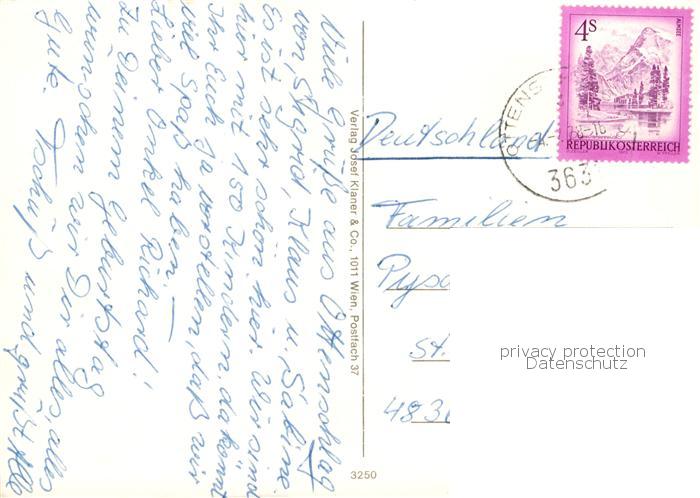 Viele Grüße aus Ottenschlag
von, Astrid, Klaus u. Sabine.
Es ist sehr schön hier. Wir sind
hier mit 150 Kindern. da könnt
Ihr Euch ja vorstellen, daß wir
viel Spaß haben. —
Lieber Onkel Richard!
Zu Deinem Geburtstag
wünschen wir Dir alles, alles
Gute. Tschüß und grüßt Alle
Verlag Josef Klaner & Co., 1011 Wien, Postfach 37
3250
4S
ALMSEE
REPUBLIK ÖSTERREICH
OTTENS
363
Deutschland
Familien
Pyso
St.
483
privacy protection
Datenschutz